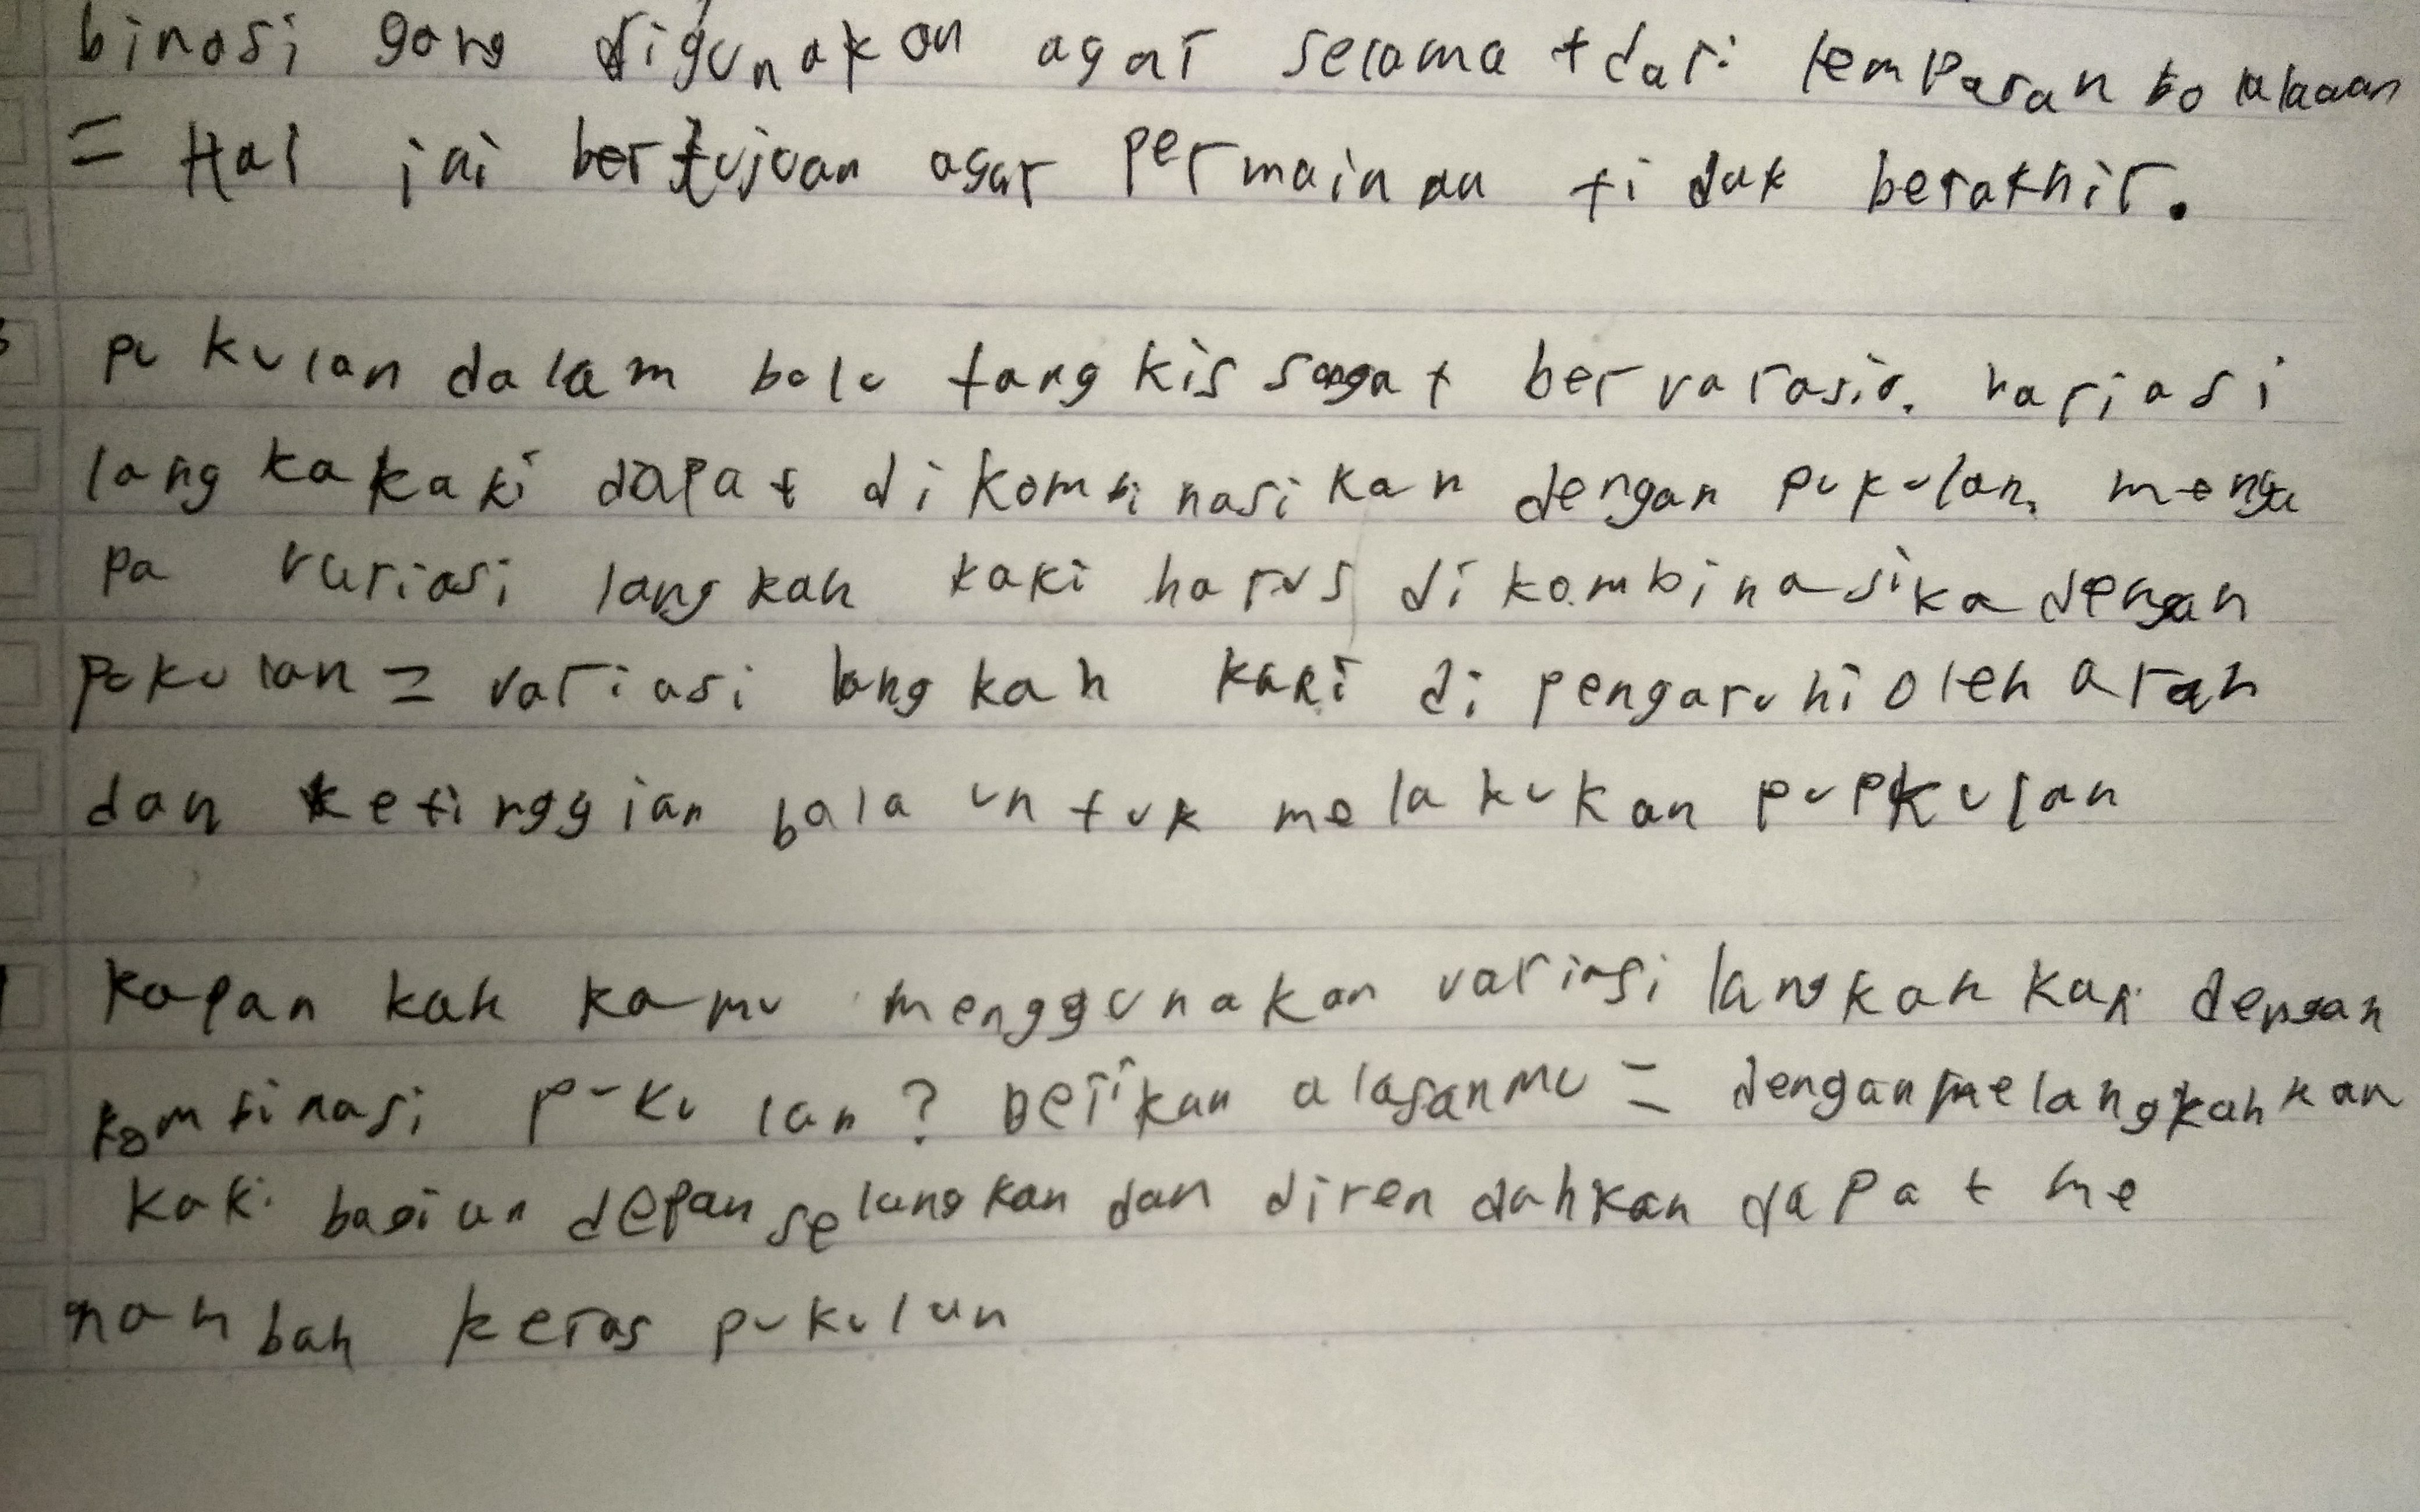 binasi yang digunakan agar selama t dari lemparan bo lawan
= Hal ini bertujuan agar permainan tidak berakhir.
pukulan dalam bola tangkis sangat bervarasio. variasi
langka kaki dapat dikombinasikan dengan pukulan, menga
pa variasi langkah kaki harus dikombinasika dengan
pukulan = variasi langkah kaki di pengaruhi oleh arah
dan ketinggian bala untuk melakukan pupkulan
kapan kah kamu menggunakan variasi langkah kaki dengan
kombinasi pukulan? Berikan alasanmu = dengan melangkahkan
kaki bagian depan selangkan dan direndahkan dapat me
nanbah keras pukulan